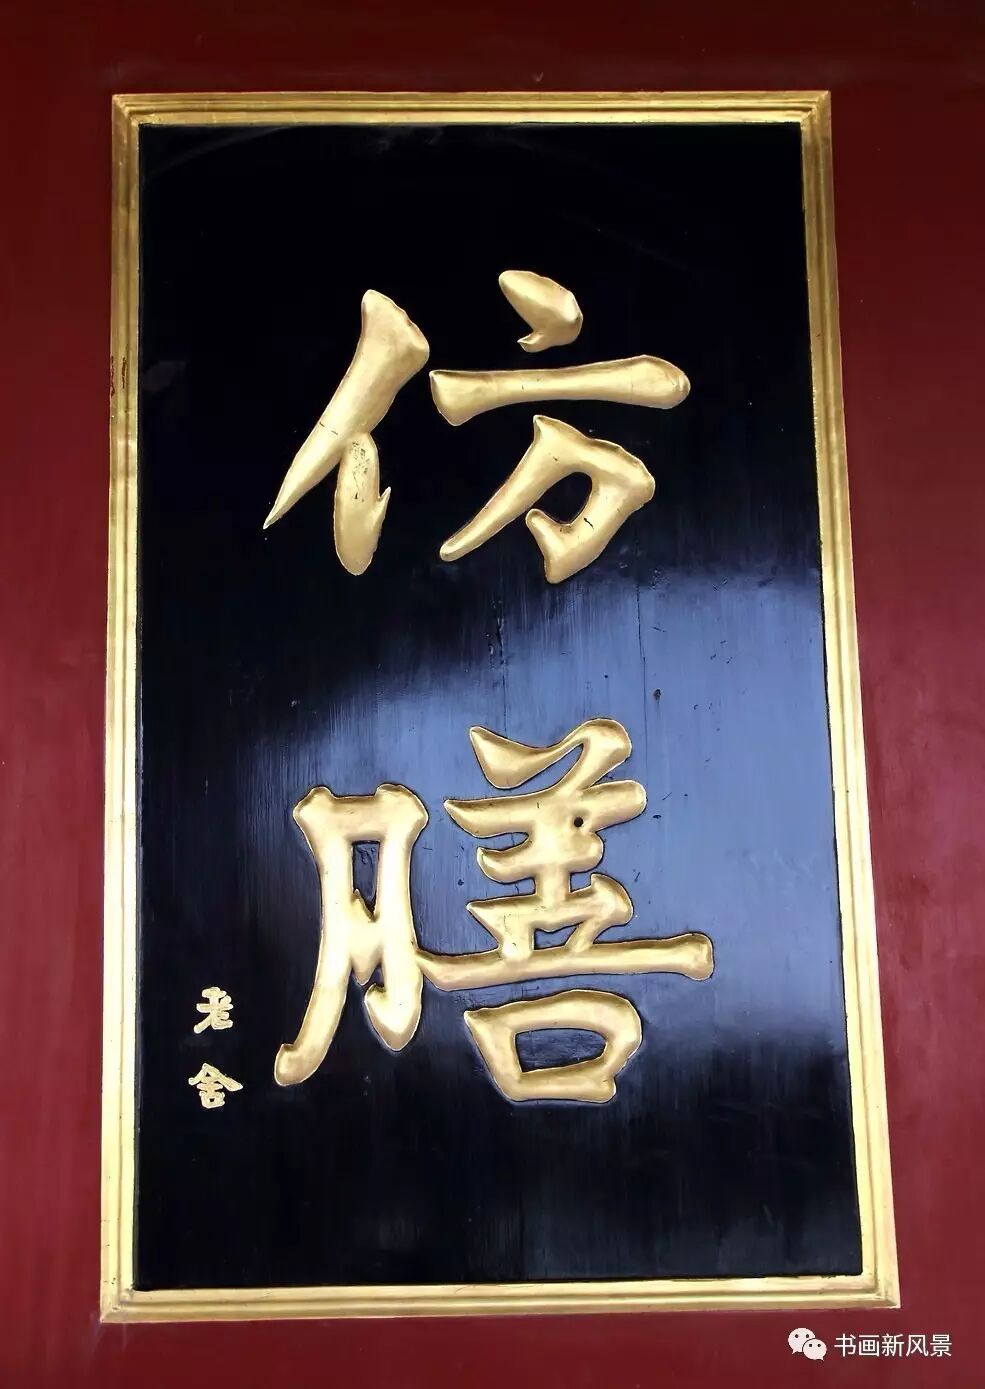 仿膳
老舍
书画新风景